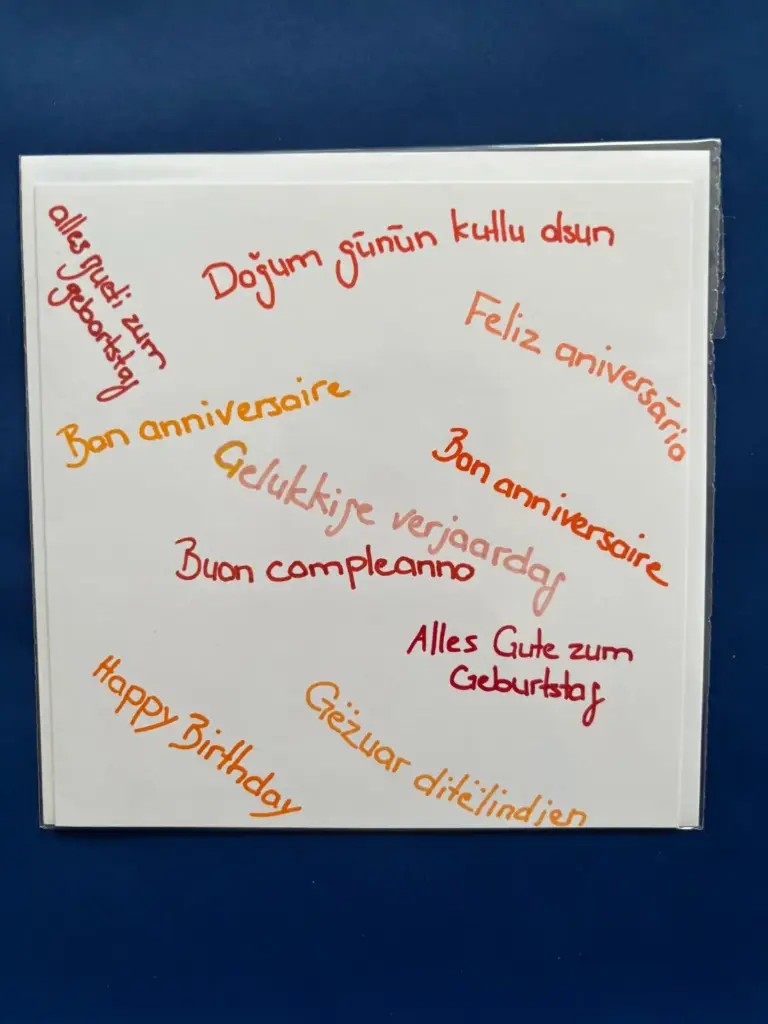 alles gueti zum
geburtstag
Doğum günün kutlu olsun
Feliz aniversário
Bon anniversaire
Gelukkige verjaardag
Bon anniversaire
Buon compleanno
Alles Gute zum
Geburtstag
Happy Birthday
Gëzuar ditëlindjen